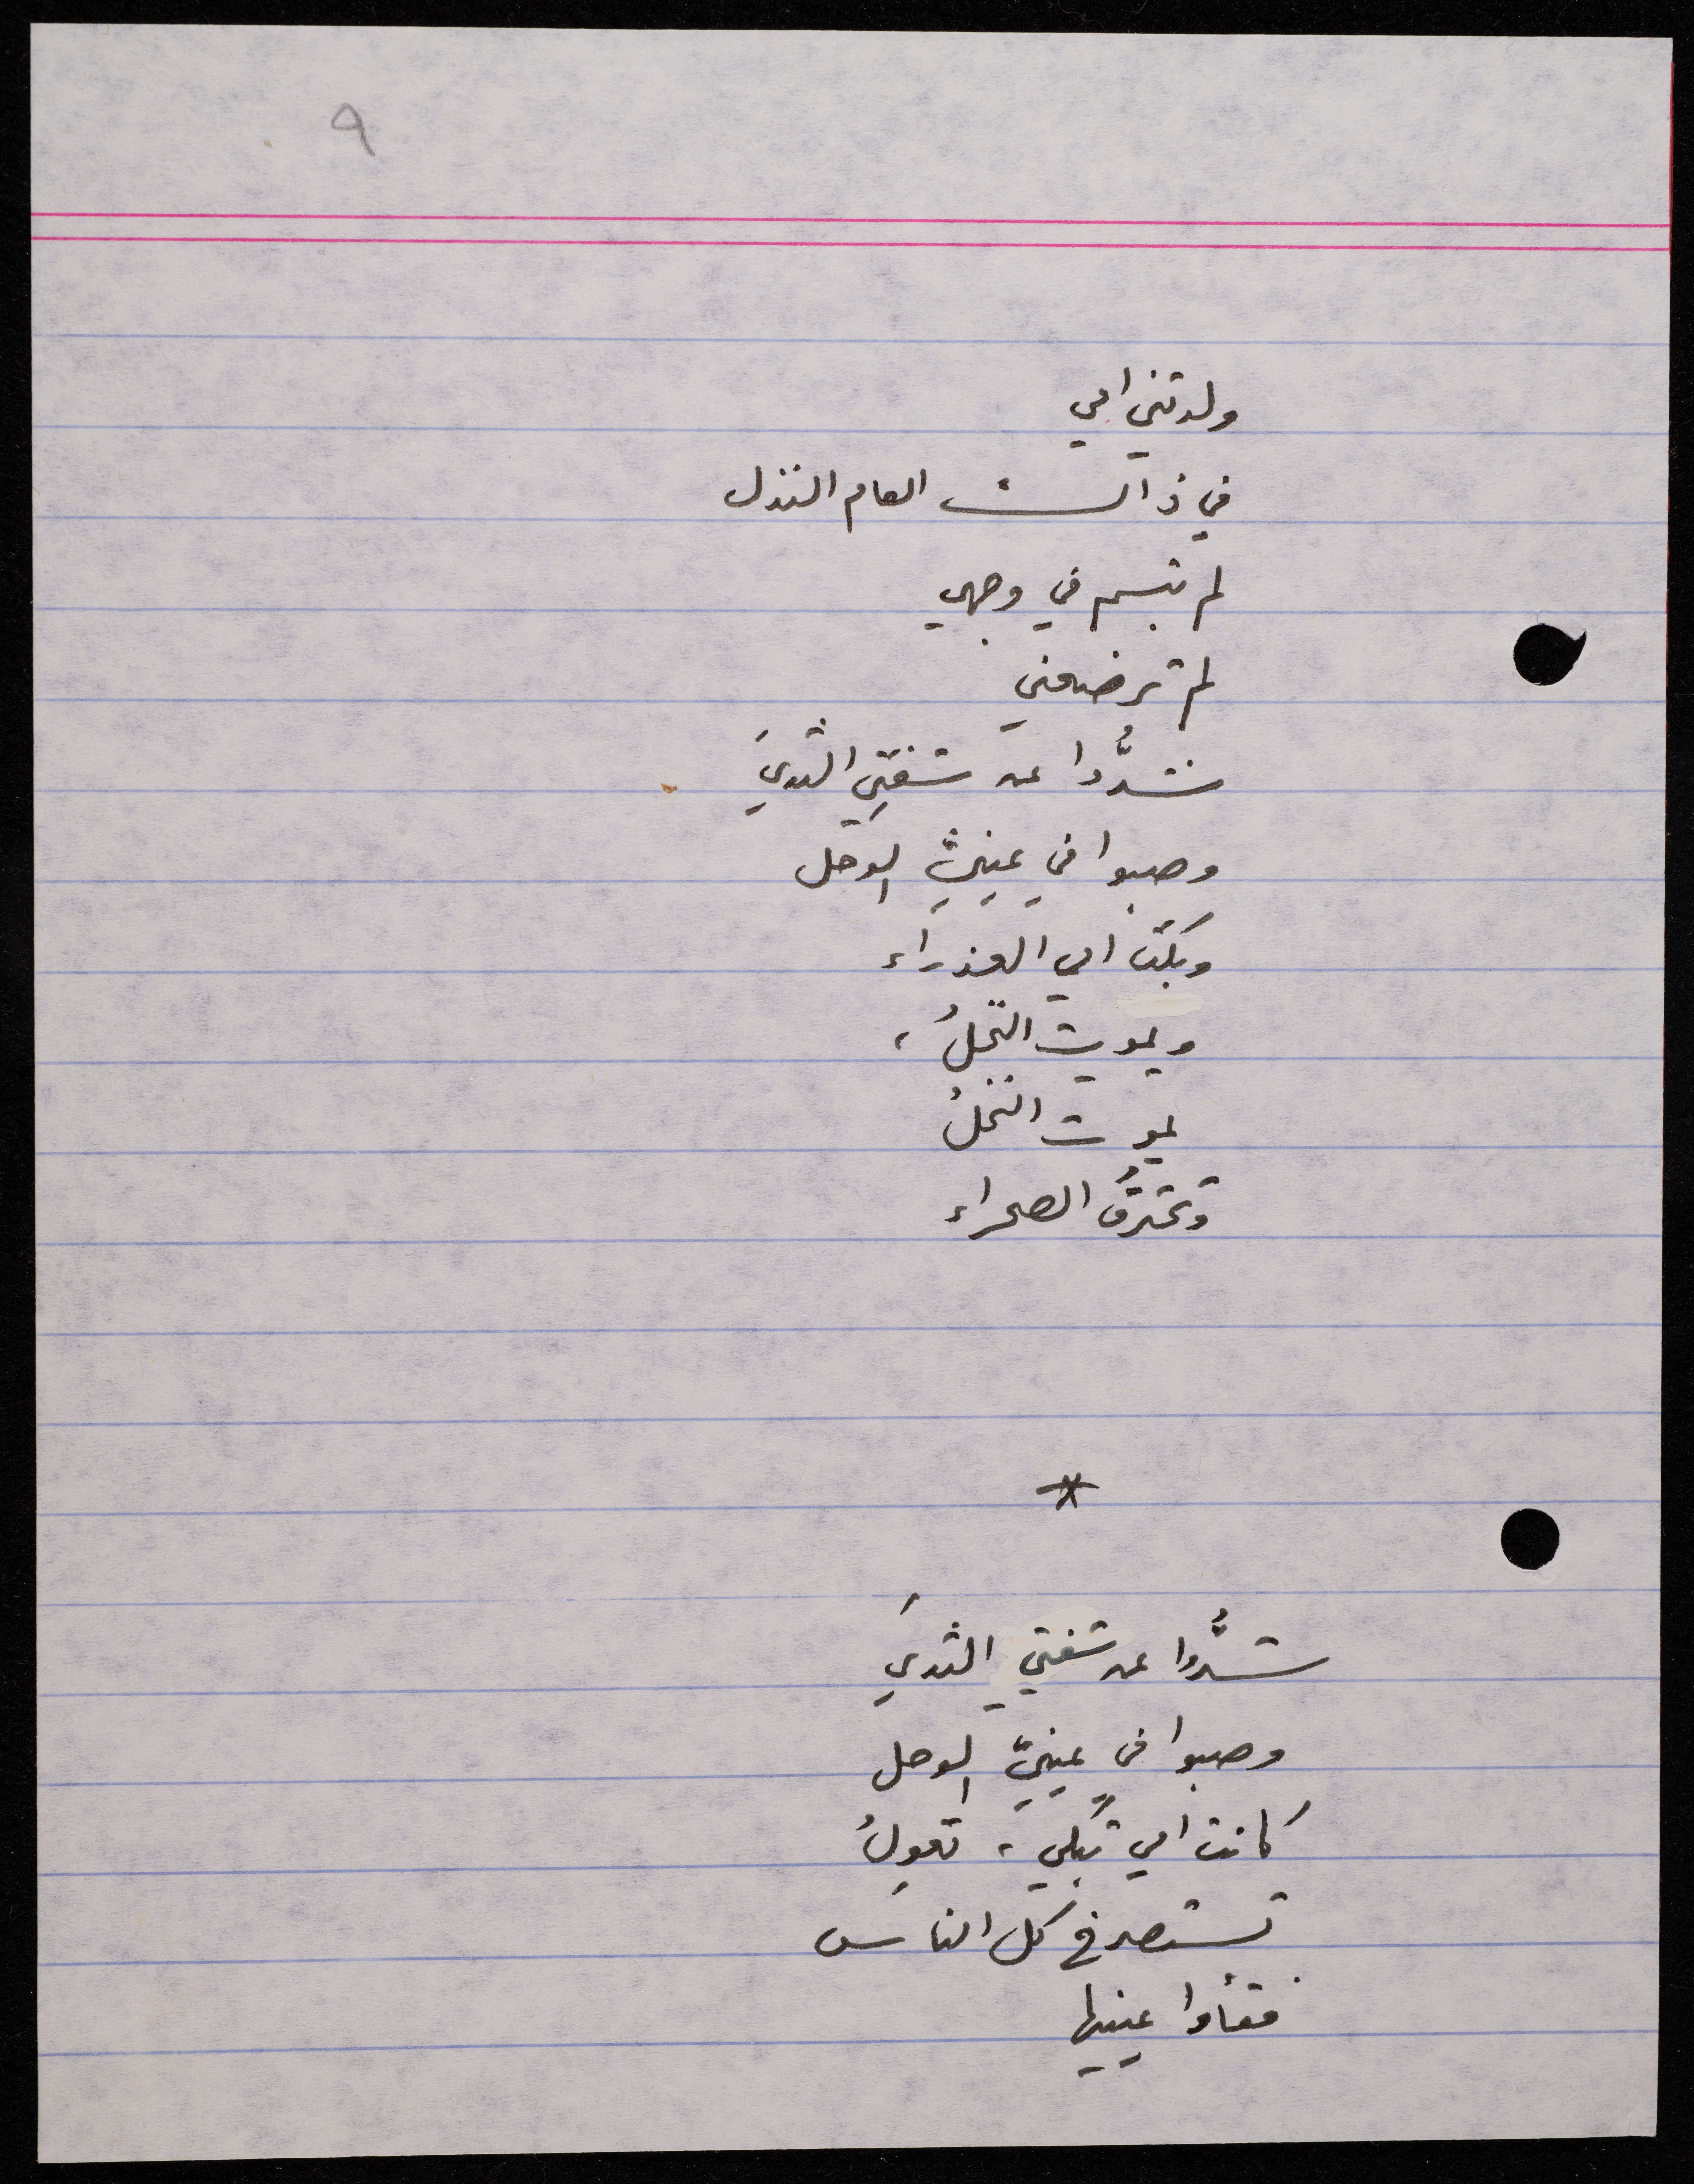 ٩
ولدتني امي
في ذاك العام النذل
لم تبسم في وجهي
لم ترضعني
شدُّوا عن شفتي الثديَ
وصبوا في عينيَّ الوحل
وبكت امي العذراء
ويموت النحلُ،
يموت النخلُ
وتحترقُ الصحراء
*
شدُّوا عن شفتي الثديَ
وصبوا في عينيَّ الوحل
كانت امي تبكي، تعولُ
تستصرخ كل الناس
فقأوا عينيها